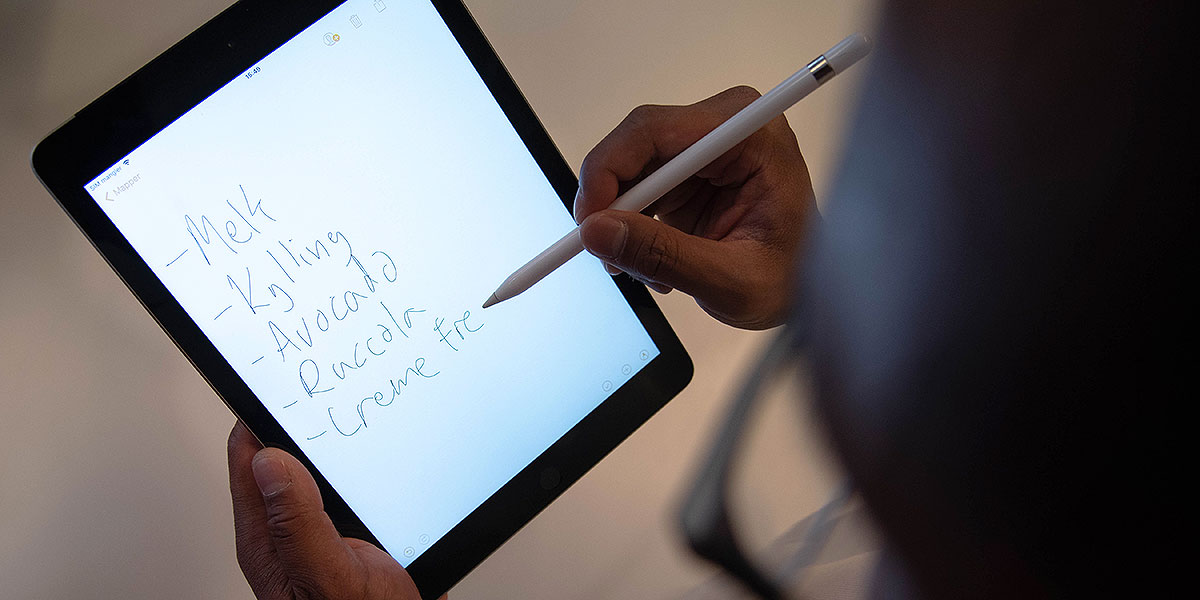 16:46
SIM mangler
< Mapper
- Melk
- Kylling
- Avocado
- Ruccola
- Creme Fre